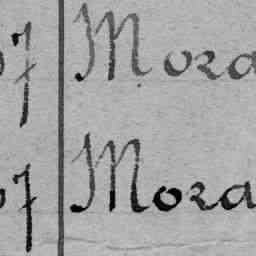 7 Mora
7 Mora